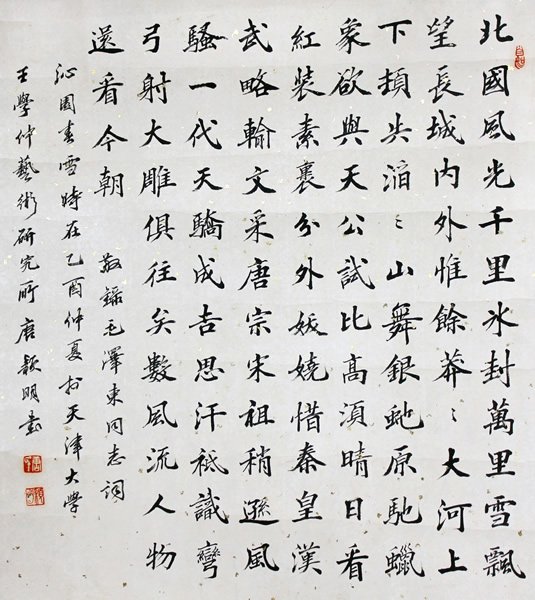 北國風光千里冰封萬里雪飄
望長城內外惟餘莽〻大河上
下頓失滔〻山舞銀虵原馳蠟
象欲與天公試比高須晴日看
紅裝素裹分外妖嬈惜秦皇漢
武略輸文采唐宗宋祖稍遜風
騷一代天驕成吉思汗祗識彎
弓射大雕俱往矣數風流人物
還看今朝 敬錄毛澤東同志詞
沁園春雪時在乙酉仲夏於天津大學
王學仲藝術研究所唐明書